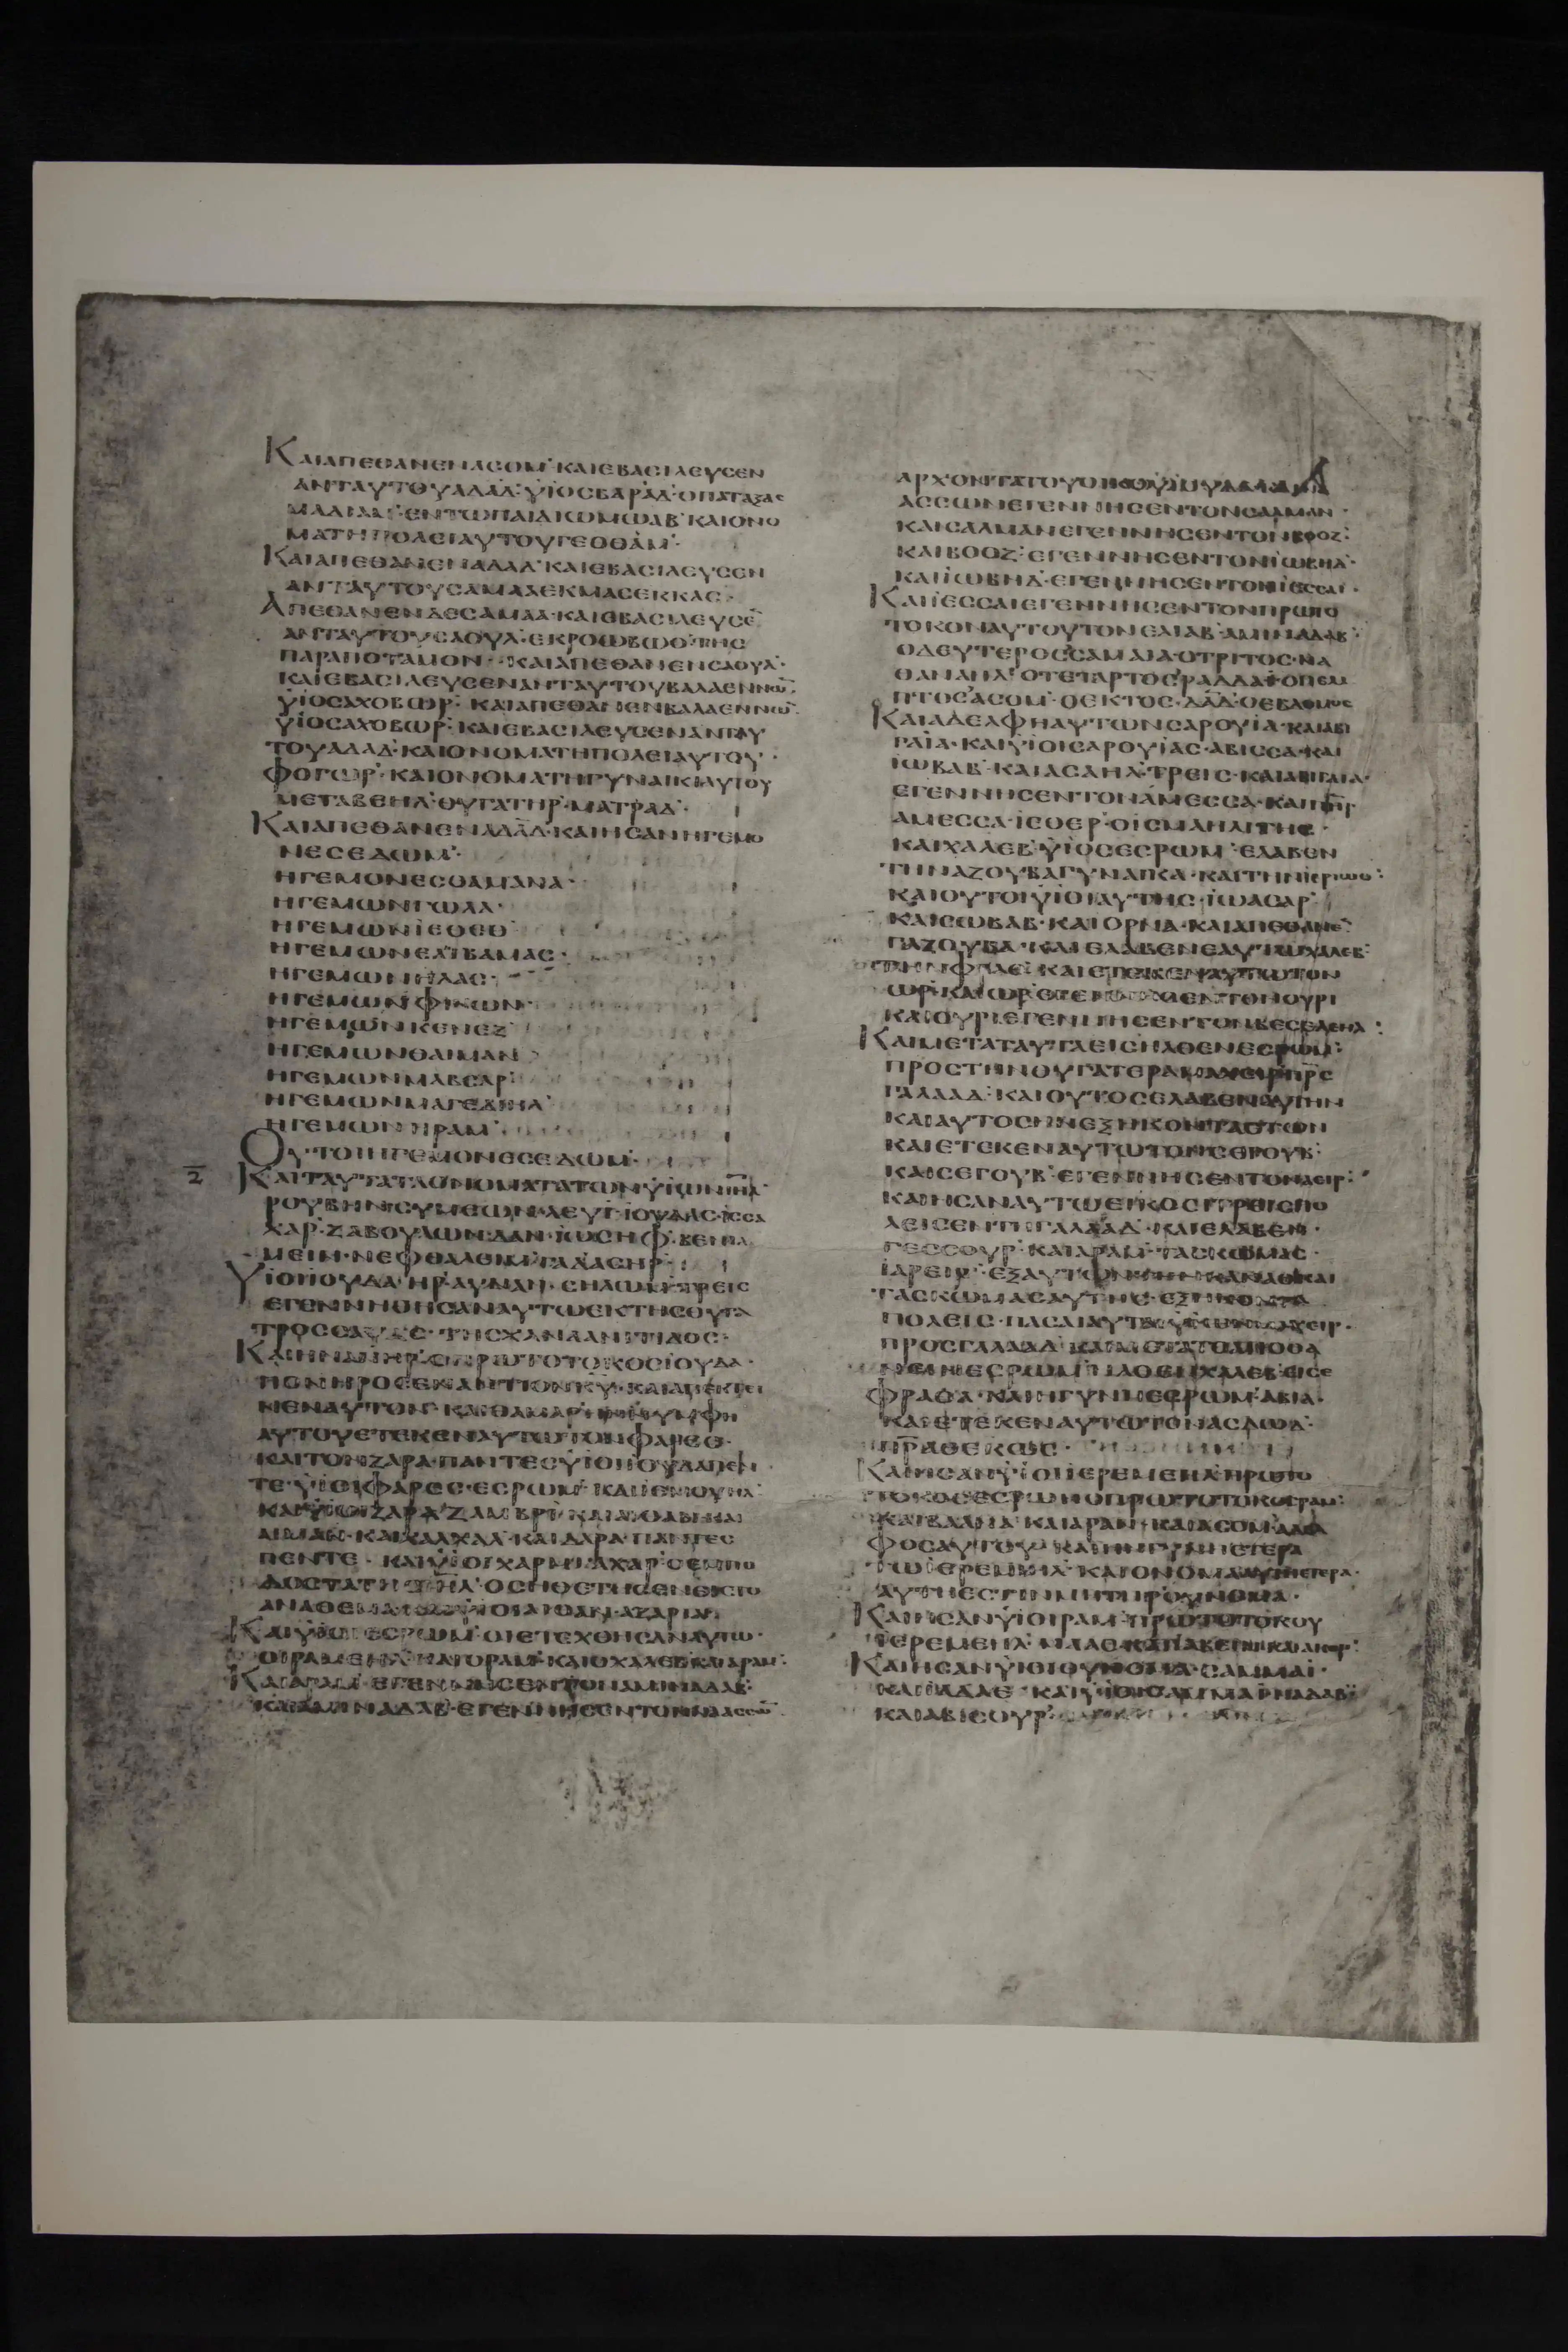 ΚΑΙΑΠΕΘΑΝΕΝΑΣΟΜ· ΚΑΙΕΒΑΣΙΛΕΥΣΕΝ
ΑΝΤΑΥΤΟΥΑΔΑΔ· ΥΙΟΣΒΑΡΑΔ· ΟΠΑΤΑΞΑΣ
ΜΑΔΙΑΜ· ΕΝΤΩΠΑΙΔΙΩΜΩΑΒ· ΚΑΙΟΝΟ
ΜΑΤΗΠΟΛΕΙΑΥΤΟΥΓΕΘΘΑΜ·
ΚΑΙΑΠΕΘΑΝΕΝΑΔΑΔ· ΚΑΙΕΒΑΣΙΛΕΥΣΕΝ
ΑΝΤΑΥΤΟΥΣΑΜΑΑΕΚΜΑΣΕΚΚΑΣ·
ΑΠΕΘΑΝΕΝΔΕΣΑΜΑΑ· ΚΑΙΕΒΑΣΙΛΕΥΣΕ̅
ΑΝΤΑΥΤΟΥΣΑΟΥΛ· ΕΚΡΟΩΒΩΘ· ΤΗΣ
ΠΑΡΑΠΟΤΑΜΟΝ· ΚΑΙΑΠΕΘΑΝΕΝΣΑΟΥΛ·
ΚΑΙΕΒΑΣΙΛΕΥΣΕΝΑΝΤΑΥΤΟΥΒΑΛΑΕΝΝΩ̅·
ΥΙΟΣΑΧΟΒΩΡ· ΚΑΙΑΠΕΘΑΝΕΝΒΑΛΑΕΝΝΩ̅·
ΥΙΟΣΑΧΟΒΩΡ· ΚΑΙΕΒΑΣΙΛΕΥΣΕΝΑΝΤΑΥ
ΤΟΥΑΔΑΔ· ΚΑΙΟΝΟΜΑΤΗΠΟΛΕΙΑΥΤΟΥ·
ΦΟΓΩΡ· ΚΑΙΟΝΟΜΑΤΗΓΥΝΑΙΚΙΑΥΤΟΥ
ΜΕΤΑΒΕΗΛ· ΘΥΓΑΤΗΡ· ΜΑΤΡΑΔ·
ΚΑΙΑΠΕΘΑΝΕΝΑΔΑΔ· ΚΑΙΗΣΑΝΗΓΕΜΟ
ΝΕΣΕΔΩΜ·
ΗΓΕΜΟΝΕΣΘΑΜΑΝΑ·
ΗΓΕΜΩΝΓΩΛΑ·
ΗΓΕΜΩΝΙΕΘΕΘ
ΗΓΕΜΩΝΕΛΙΒΑΜΑΣ·
ΗΓΕΜΩΝΗΛΑΣ·
ΗΓΕΜΩΝΦΙΝΩΝ·
ΗΓΕΜΩΝΚΕΝΕΖ·
ΗΓΕΜΩΝΘΑΙΜΑΝ
ΗΓΕΜΩΝΜΑΒΣΑΡ·
ΗΓΕΜΩΝΜΑΓΕΔΙΗΛ·
ΗΓΕΜΩΝΗΡΑΜ·
ΟΥΤΟΙΗΓΕΜΟΝΕΣΕΔΩΜ·
ΚΑΙΤΑΥΤΑΤΑΟΝΟΜΑΤΑΤΩΝΥΙΩΝΙ̅Η̅Λ̅
ΡΟΥΒΗΝ· ΣΥΜΕΩΝ· ΛΕΥΙ· ΙΟΥΔΑΣ· ΙΣΣΑ
ΧΑΡ· ΖΑΒΟΥΛΩΝ· ΔΑΝ· ΙΩΣΗΦ· ΒΕΝΙΑ
ΜΕΙΝ· ΝΕΦΘΑΛΕΙΜ· ΓΑΔ· ΑΣΗΡ·
ΥΙΟΙΙΟΥΔΑ· ΗΡ· ΑΥΝΑΝ· ΣΗΛΩΜ· ΤΡΕΙΣ
ΕΓΕΝΝΗΘΗΣΑΝΑΥΤΩΕΚΤΗΣΘΥΓΑ
ΤΡΟΣΣΑΥΑΣ· ΤΗΣΧΑΝΑΑΝΙΤΙΔΟΣ·
ΚΑΙΗΝΗΡ· ΟΠΡΩΤΟΤΟΚΟΣΙΟΥΔΑ·
ΠΟΝΗΡΟΣΕΝΑΝΤΙΟΝΚ̅Υ̅· ΚΑΙΑΠΕΚΤΕΙ
ΝΕΝΑΥΤΟΝ· ΚΑΙΘΑΜΑΡΗΝΥΜΦΗ
ΑΥΤΟΥΕΤΕΚΕΝΑΥΤΩΤΟΝΦΑΡΕΣ·
ΚΑΙΤΟΝΖΑΡΑ· ΠΑΝΤΕΣΥΙΟΙΙΟΥΔΑΠΕΝ
ΤΕ· ΥΙΟΙΦΑΡΕΣ· ΕΣΡΩΜ· ΚΑΙΙΕΜΟΥΗΛ·
ΚΑΙΥΙΟΙΖΑΡΑ· ΖΑΜΒΡΙ· ΚΑΙΑΙΘΑΝΚΑΙ
ΑΙΜΑΝ· ΚΑΙΧΑΛΧΑΛ· ΚΑΙΔΑΡΑ· ΠΑΝΤΕΣ
ΠΕΝΤΕ· ΚΑΙΥΙΟΙΧΑΡΜΙ· ΑΧΑΡ· ΟΕΜΠΟ
ΔΟΣΤΑΤΗΣΙ̅Η̅Λ̅· ΟΣΗΘΕΤΗΣΕΝΕΙΣΤΟ
ΑΝΑΘΕΜΑ· ΚΑΙΥΙΟΙΑΙΘΑΝ· ΑΖΑΡΙΑ·
ΚΑΙΥΙΟΙΕΣΡΩΜ· ΟΙΕΤΕΧΘΗΣΑΝΑΥΤΩ·
ΟΙΡΑΜΕΗΛ· ΚΑΙΟΡΑΜ· ΚΑΙΟΧΑΛΕΒ· ΚΑΙΑΡΑΜ·
ΚΑΙΑΡΑΜ· ΕΓΕΝΝΗΣΕΝΤΟΝΑΜΙΝΑΔΑΒ·
ΚΑΙΑΜΙΝΑΔΑΒ· ΕΓΕΝΝΗΣΕΝΤΟΝΝΑΑΣΣΩ̅
ΑΡΧΟΝΤΑΤΟΥΟΙΚΟΥΙΟΥΔΑ·
ΑΣΣΩΝΕΓΕΝΝΗΣΕΝΤΟΝΣΑΛΜΑΝ·
ΚΑΙΣΑΛΜΑΝΕΓΕΝΝΗΣΕΝΤΟΝΒΟΟΖ·
ΚΑΙΒΟΟΖ· ΕΓΕΝΝΗΣΕΝΤΟΝΙΩΒΗΔ·
ΚΑΙΙΩΒΗΔ· ΕΓΕΝΝΗΣΕΝΤΟΝΙΕΣΣΑΙ·
ΚΑΙΙΕΣΣΑΙΕΓΕΝΝΗΣΕΝΤΟΝΠΡΩΤΟ
ΤΟΚΟΝΑΥΤΟΥΤΟΝΕΛΙΑΒ· ΑΜΙΝΑΔΑΒ·
ΟΔΕΥΤΕΡΟΣΣΑΜΑΙΑ· ΟΤΡΙΤΟΣ· ΝΑ
ΘΑΝΑΗΛ· ΟΤΕΤΑΡΤΟΣ· ΡΑΔΔΑΙΟΠΕΜ
ΠΤΟΣ· ΑΣΟΜ· ΟΕΚΤΟΣ· Δ̅Α̅Δ̅· ΟΕΒΔΟΜΟΣ
ΚΑΙΑΔΕΛΦΗΑΥΤΩΝΣΑΡΟΥΙΑ· ΚΑΙΑΒΙ
ΓΑΙΑ· ΚΑΙΥΙΟΙΣΑΡΟΥΙΑΣ· ΑΒΙΣΣΑ· ΚΑΙ
ΙΩΒΑΒ· ΚΑΙΑΣΑΗΛ· ΤΡΕΙΣ· ΚΑΙΑΒΙΓΑΙΑ·
ΕΓΕΝΝΗΣΕΝΤΟΝΑΜΕΣΣΑ· ΚΑΙΠ̅Η̅Ρ̅
ΑΜΕΣΣΑ· ΙΕΘΕΡ· ΟΙΣΜΑΗΛΙΤΗΣ·
ΚΑΙΧΑΛΕΒ· ΥΙΟΣΕΣΡΩΜ· ΕΛΑΒΕΝ
ΤΗΝΑΖΟΥΒΑΓΥΝΑΙΚΑ· ΚΑΙΤΗΝΙΕΡΙΩΘ·
ΚΑΙΟΥΤΟΙΥΙΟΙΑΥΤΗΣ· ΙΩΑΣΑΡ·
ΚΑΙΣΩΒΑΒ· ΚΑΙΟΡΝΑ· ΚΑΙΑΠΕΘΑΝΕ̅
ΓΑΖΟΥΒΑ· ΚΑΙΕΛΑΒΕΝΕΑΥΤΩΧΑΛΕΒ·
ΚΑΙΕΤΕΚΕΝΑΥΤΩΤΟΝ
ΩΡ· ΚΑΙΩΡ· ΕΓΕΝΝΗΣΕΝΤΟΝΟΥΡΙ
ΚΑΙΟΥΡΙΕΓΕΝΝΗΣΕΝΤΟΝΒΕΣΕΛΕΗΛ·
ΚΑΙΜΕΤΑΤΑΥΤΑΕΙΣΗΛΘΕΝΕΣΡΩΜ·
ΠΡΟΣΤΗΝΘΥΓΑΤΕΡΑΜΑΧΕΙΡΠ̅Ρ̅Σ̅
ΓΑΛΑΑΔ· ΚΑΙΟΥΤΟΣΕΛΑΒΕΝΑΥΤΗΝ
ΚΑΙΑΥΤΟΣΗΝΕΞΗΚΟΝΤΑΕΤΩΝ
ΚΑΙΕΤΕΚΕΝΑΥΤΩΤΟΝΣΕΡΟΥΒ·
ΚΑΙΣΕΓΟΥΒ· ΕΓΕΝΝΗΣΕΝΤΟΝΙΑΕΙΡ·
ΚΑΙΗΣΑΝΑΥΤΩΕΙΚΟΣΙΤΡΕΙΣΠΟ
ΛΕΙΣΕΝΤΗΓΑΛΑΑΔ· ΚΑΙΕΛΑΒΕΝ·
ΓΕΣΣΟΥΡ· ΚΑΙΑΡΑΜ· ΤΑΣΚΩΜΑΣ·
ΙΑΕΙΡ· ΕΞΑΥΤΩΝ· ΤΗΝΚΑΝΑΘΚΑΙ
ΤΑΣΚΩΜΑΣΑΥΤΗΣ· ΕΞΗΚΟΝΤΑ
ΠΟΛΕΙΣ· ΠΑΣΑΙΑΥΤΑΙΥΙΩΝΜΑΧΕΙΡ·
ΠΡΟΣΓΑΛΑΑΔ· ΚΑΙΜΕΤΑΤΟΑΠΟΘΑ
ΝΕΙΝΕΣΡΩΜ· ΗΛΘΕΝΧΑΛΕΒΕΙΣΕ
ΦΡΑΘΑ· ΚΑΙΗΓΥΝΗΕΣΡΩΜ· ΑΒΙΑ·
ΚΑΙΕΤΕΚΕΝΑΥΤΩΤΟΝΑΣΔΩΔ·
Π̅Ρ̅Α̅ΘΕΚΩΕ·
ΚΑΙΗΣΑΝΥΙΟΙΙΕΡΕΜΕΗΛΠΡΩΤΟ
ΤΟΚΟΣΕΣΡΩΝΟΠΡΩΤΟΤΟΚΟΣΡΑΜ·
ΚΑΙΒΑΑΝΑ· ΚΑΙΑΡΑΝ· ΚΑΙΑΣΟΜΑΔΕΛ
ΦΟΣΑΥΤΟΥ· ΚΑΙΗΝΓΥΝΗΕΤΕΡΑ
ΤΩΙΕΡΕΜΕΗΛ· ΚΑΙΟΝΟΜΑΑΥΤΗ
ΑΥΤΗΕΣΤΙΝΜΗΤΗΡΟΥΝΟΜΑ·
ΚΑΙΗΣΑΝΥΙΟΙΡΑΜ· ΠΡΩΤΟΤΟΚΟΥ
ΙΕΡΕΜΕΗΛ· ΜΑΑΣ·
ΚΑΙΗΣΑΝΥΙΟΙΟΥΝΟΜΑ· ΣΑΜΜΑΙ·
ΚΑΙΙΑΔΑΕ· ΚΑΙΥΙΟΙΣΑΜΜΑΙΝΑΔΑΒ·
ΚΑΙΑΒΙΣΟΥΡ·